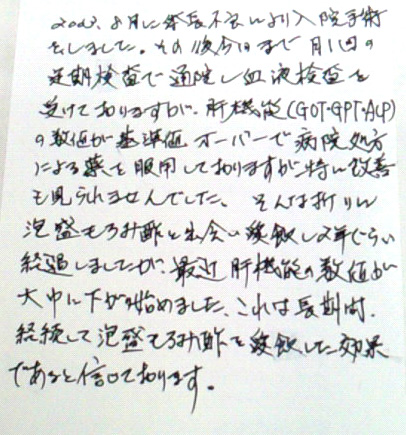 2002、8月に体長不良により入院手術
をしました。その後今日まで月1回の
定期検査で通院し血液検査を
受けておりますが、肝機能(GOT・GPT・ALP)
の数値が基準値オーバーで病院処方
による薬を服用しておりますが特に改善
も見られませんでした、そんな折りに
泡盛もろみ酢と出会い愛飲し2年ぐらい
経過しましたが、最近肝機能の数値が
大巾に下がり始めました、これは長期間、
継続して泡盛もろみ酢を愛飲した効果
であると信じております。